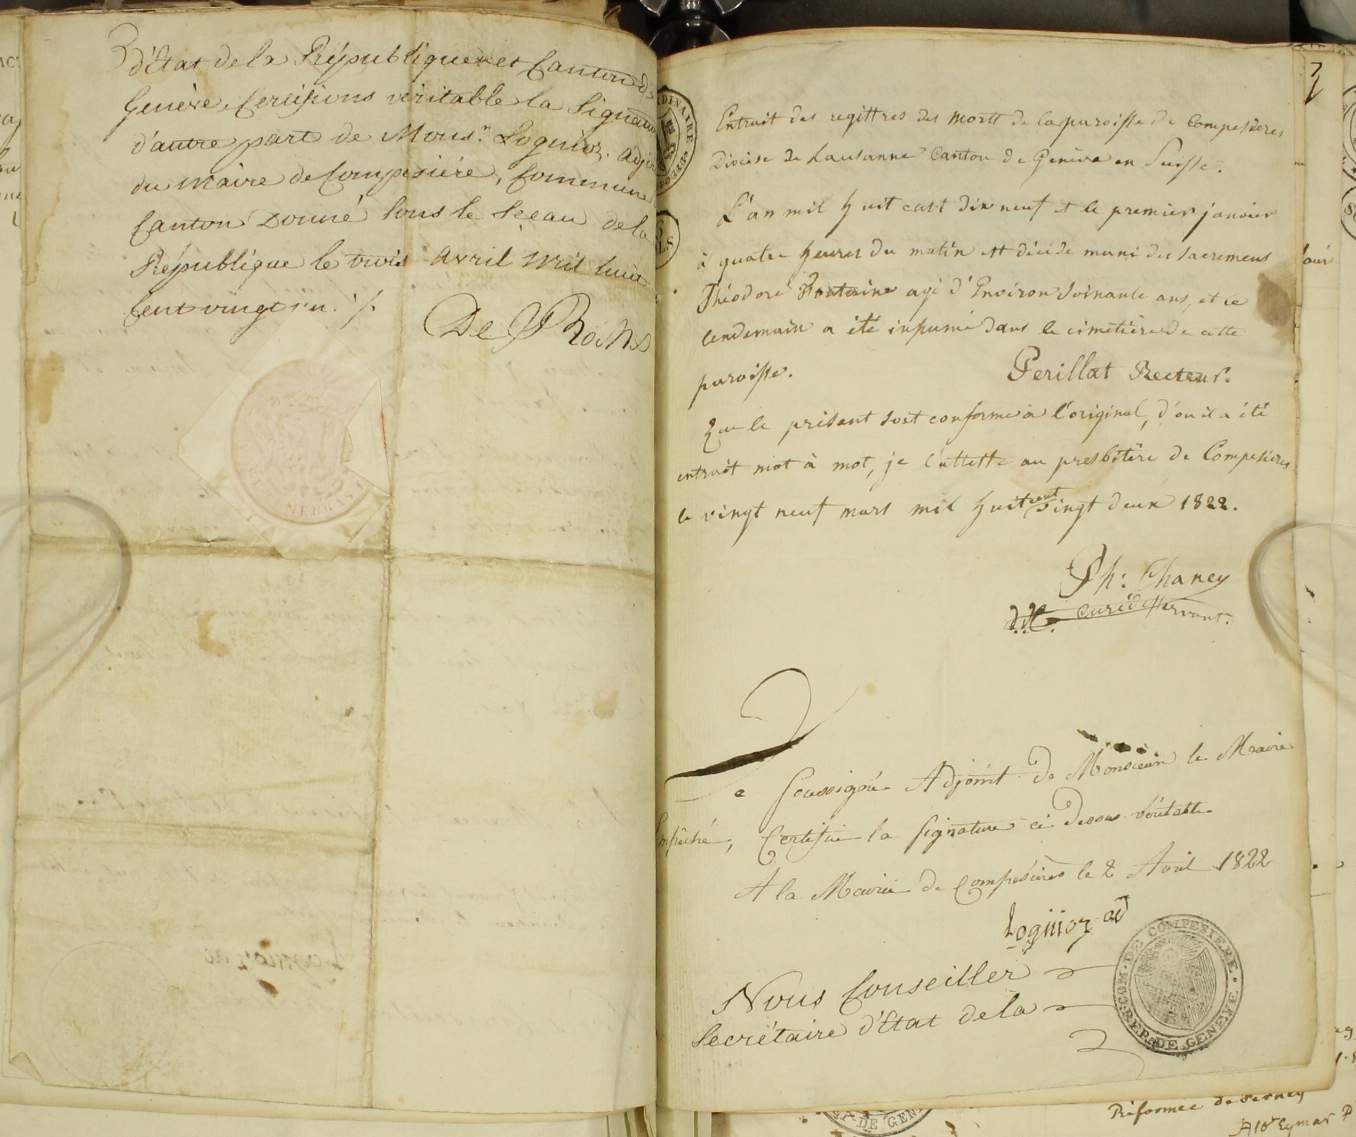 d'Etat de la République et Canton de
Genève, Certifions véritable la Signature
d'autre part de Mons.r Lognioz, adjoint
du maire de Compesiére, Commune
Canton Donné Sous le Sceau de la
République le trois Avril Mil huit
Cent vingt
De Rochs
Extrait des regittres des mortt de la paroisse de Compesières
Diocèse de Lausanne Canton de Genève en Suisse.
L'an mil huit cent dix neuf et le premier janvier
à quatre heures du matin est décédé muni des sacremens
Théodore Fontaine agé d'Environ soixante ans, et le
lendemain a été inhumé dans le cimetière de cette
paroisse.
Perillat Recteur.
Que le présent soit conforme à l'original, d'ou il a été
extrait mot à mot, je l'attette au presbitère de Compesières
le vingt neuf mars mil huit cent vingt deux 1822.
Ph: Chaney
curé desservant.
Je soussigné Adjoint de Monsieur le Maire
Empêché, Certifie la signature ci dessus véritable
A la Mairie de Compesières le 2 Avril 1822
Lognioz adj
COM. DE COMPEZIERE. REP. DE GENEVE
Nous Conseiller
Secrétaire d'Etat de la
Réformée de Ferney
Eymar P